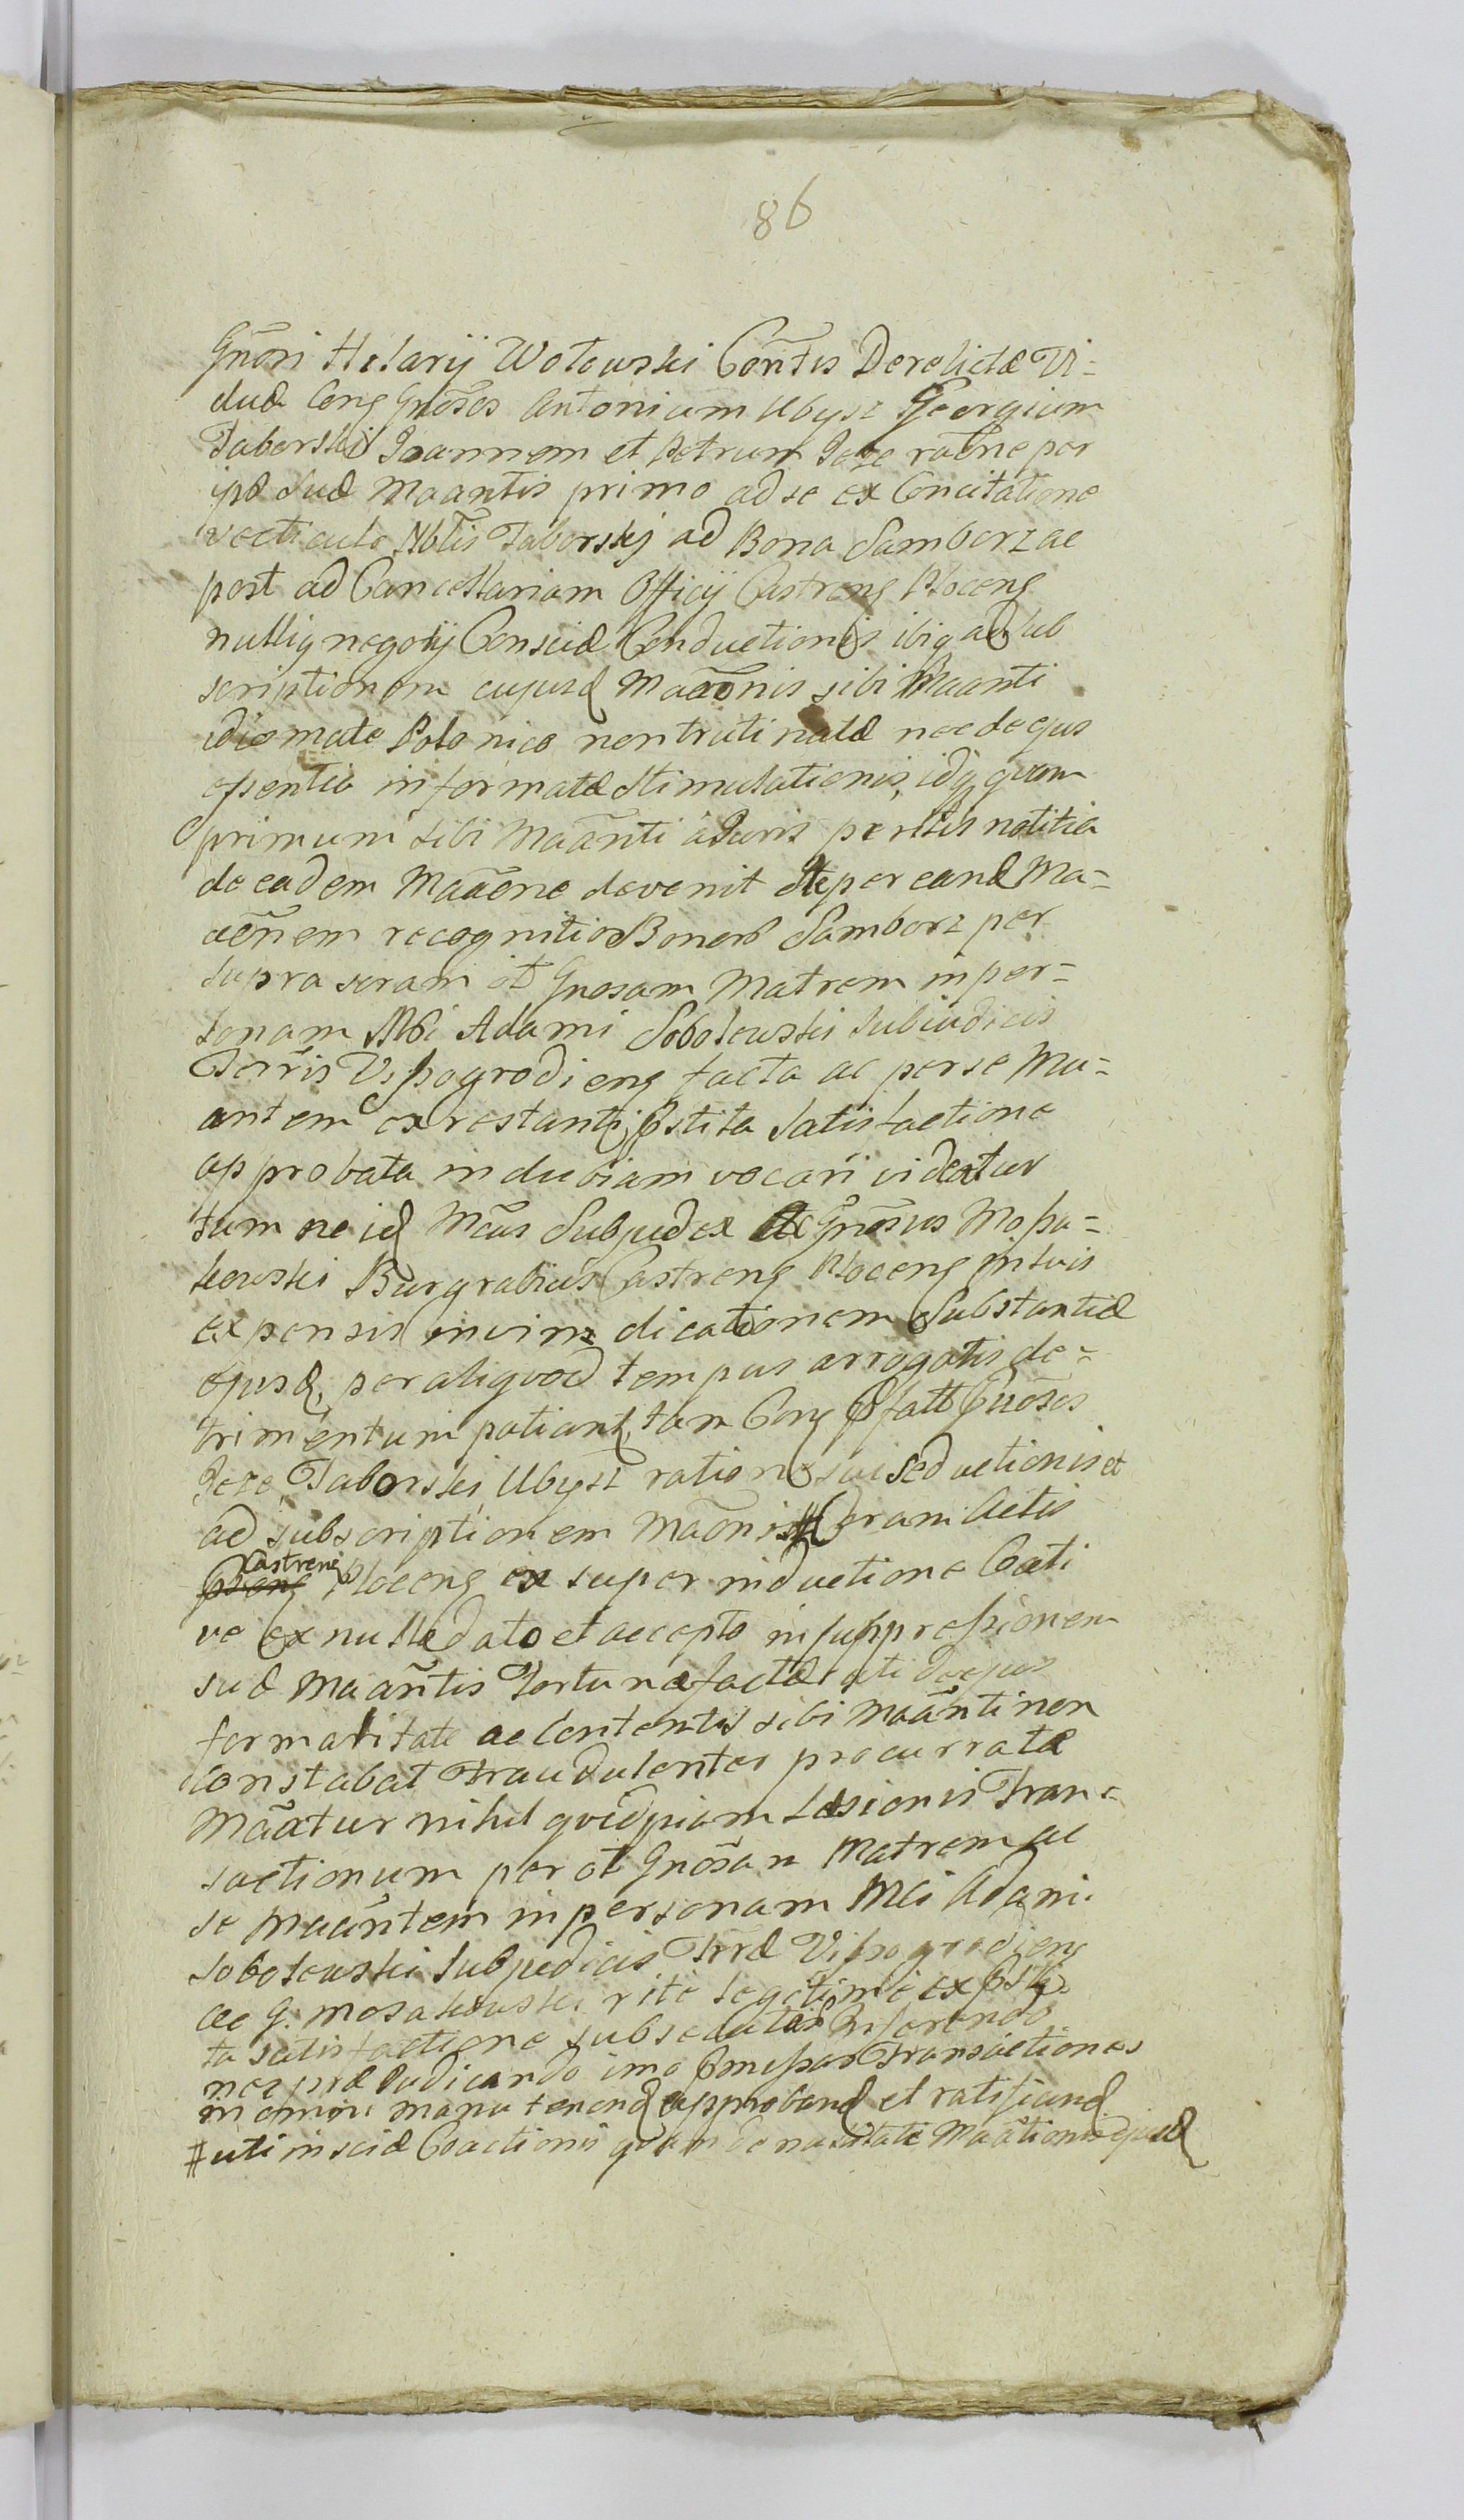 86
Gnõsi Hilarij Wołowski Con̄tis Derelictæ Vi=
duæ Cong Gnõsos Antonium Ubysz Georgium
Taborski Joannem et Petrum Jeże raõne per
ipã suæ Maantis primo ad se ex Concitatione
vecticulo Nblis Taborskj ad Bona Samborz ac
post ad Cancellariam Officij Castreng Ploceng
nullig negotij Consciæ Conductionis ibiq ad sub
scriptionem cujusd Maãonis sibi Maanti
idiomate Polonico non trutinatæ nec de ejus
essentia informatæ stimulationis, idq quam
primum sibi Maãnti à Juris peritis notitia
de eadem Maãone devenit Ne per eand Ma=
aõnem recognitio Bonorũ Samborz per
supra scram ot Gnosam Matrem in per=
sonam Mci Adami Sobolewski Subiudicis
Terr̃is Vyssogrodieng facta ac per se Ma=
antem ex restanti pstita satisfactione
approbata in dubiam vocari videatur
tum ne id Mcus Subjudex Ac Gnõsus Mossa=
kowski Burgrabius Castreng Ploceng in suis
expensis in vim dicationem Substantiæ
ejusd, per aliquod tempus arrogatis de=
trimentum patiant, tam Cong Pfatt Gnõsos
Jeże, Taborski, Ubysz rations suæ seductionis et
ad subscriptionem Maõnis # Coram Actis
Castreng Ploceng ex super inductione Coacti
ve ex nulle dato et accepto in suppressionem
suæ Maan̄tis Fortunæ factæ uti de ejus
formalitate ac Contentis sibi Maãnti non
constabat Fraudulenter procurratæ
Maãtur nihil quidpiam Læsionis Tran=
sactionum per ot Gnõsam Matrem ac
se Maãntem in personam Mci Adami
Sobolewski Subjudicis Trræ Vissogrodieng
ac G. Mosakowski rite legitime ex psti
ta satisfactione subsecutas Inferendo
nec præ Judicando imo Omissas Transactiones
in omni manu tenend approband et ratificand
# uti insciæ Coactionis quam de nullitate Maãtionis ejusd